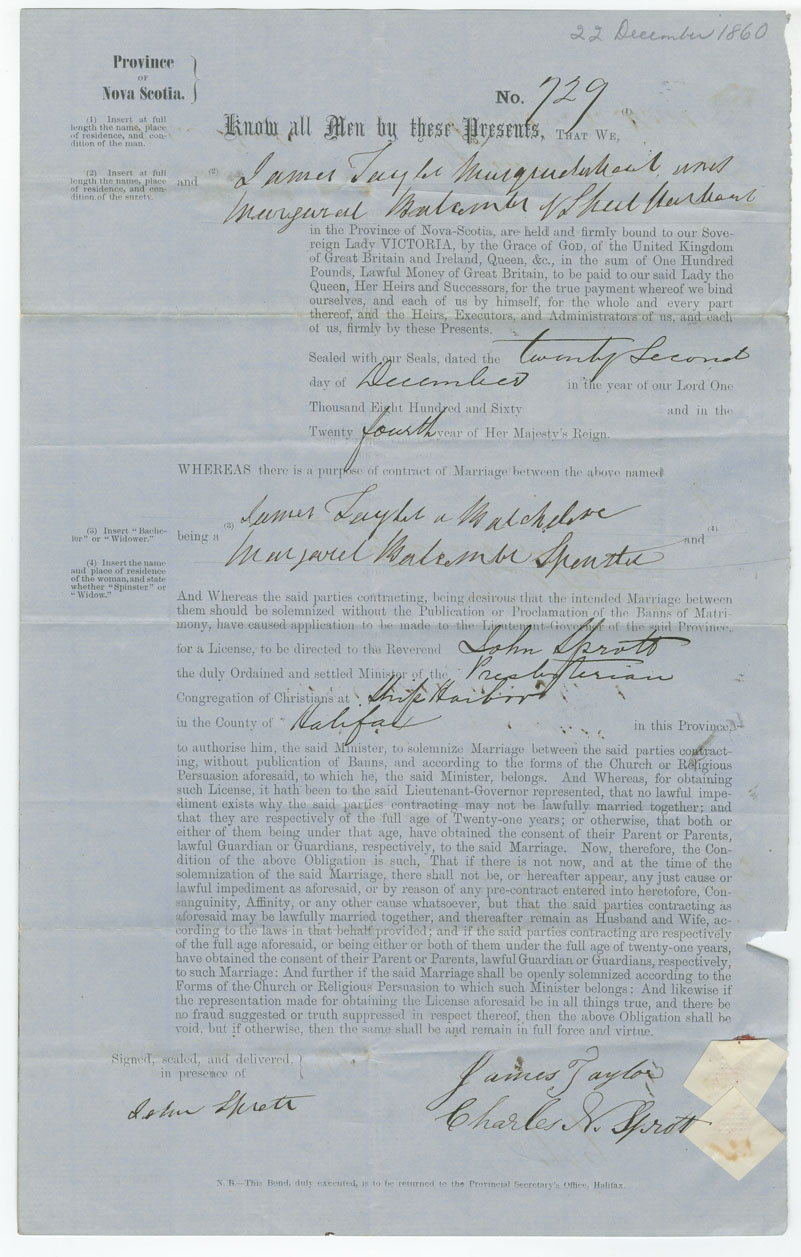 22 December 1860
Province
OF
Nova Scotia.
No. 729
(1)
Know all Men by these Presents, THAT WE,
(1) Insert at full
length the name, place
of residence, and con-
dition of the man.
(2) Insert at full
length the name, place
of residence, and con-
dition of the surety.
(2)
James Taylor
and
Margaret Balcombe of Sheet Harbour
in the Province of Nova-Scotia, are held and firmly bound to our Sove-
reign Lady VICTORIA, by the Grace of GOD, of the United Kingdom
of Great Britain and Ireland, Queen, &c., in the sum of One Hundred
Pounds, Lawful Money of Great Britain, to be paid to our said Lady the
Queen, Her Heirs and Successors, for the true payment whereof we bind
ourselves, and each of us by himself, for the whole and every part
thereof, and the Heirs, Executors, and Administrators of us, and each
of us, firmly by these Presents.
Sealed with our Seals, dated the twenty Second
day of December in the year of our Lord One
Thousand Eight Hundred and Sixty and in the
Twenty fourth year of Her Majesty's Reign.
WHEREAS there is a purpose of contract of Marriage between the above named
(3) Insert "Bache-
lor" or "Widower."
(3)
James Taylor a Batchelore
being a and (4)
Margaret Balcombe Spinster
(4) Insert the name
and place of residence
of the woman, and state
whether "Spinster" or
"Widow."
And Whereas the said parties contracting, being desirous that the intended Marriage between
them should be solemnized without the Publication or Proclamation of the Banns of Matri-
mony, have caused application to be made to the Lieutenant-Governor of the said Province,
for a License, to be directed to the Reverend John Sprott
the duly Ordained and settled Minister of the Presbyterian
Congregation of Christians at Ship Harbor
in the County of Halifax in this Province,
to authorise him, the said Minister, to solemnize Marriage between the said parties contract-
ing, without publication of Banns, and according to the forms of the Church or Religious
Persuasion aforesaid, to which he, the said Minister, belongs. And Whereas, for obtaining
such License, it hath been to the said Lieutenant-Governor represented, that no lawful impe-
diment exists why the said parties contracting may not be lawfully married together; and
that they are respectively of the full age of Twenty-one years; or otherwise, that both or
either of them being under that age, have obtained the consent of their Parent or Parents,
lawful Guardian or Guardians, respectively, to the said Marriage. Now, therefore, the Con-
dition of the above Obligation is such, That if there is not now, and at the time of the
solemnization of the said Marriage, there shall not be, or hereafter appear, any just cause or
lawful impediment as aforesaid, or by reason of any pre-contract entered into heretofore, Con-
sanguinity, Affinity, or any other cause whatsoever, but that the said parties contracting as
aforesaid may be lawfully married together, and thereafter remain as Husband and Wife, ac-
cording to the laws in that behalf provided; and if the said parties contracting are respectively
of the full age aforesaid, or being either or both of them under the full age of twenty-one years,
have obtained the consent of their Parent or Parents, lawful Guardian or Guardians, respectively,
to such Marriage: And further if the said Marriage shall be openly solemnized according to the
Forms of the Church or Religious Persuasion to which such Minister belongs: And likewise if
the representation made for obtaining the License aforesaid be in all things true, and there be
no fraud suggested or truth suppressed in respect thereof, then the above Obligation shall be
void, but if otherwise, then the same shall be and remain in full force and virtue.
Signed, sealed, and delivered,
in presence of
James Taylor
John Sprott
Charles N. Sprott
N. B.—This Bond, duly executed, is to be returned to the Provincial Secretary's Office, Halifax.